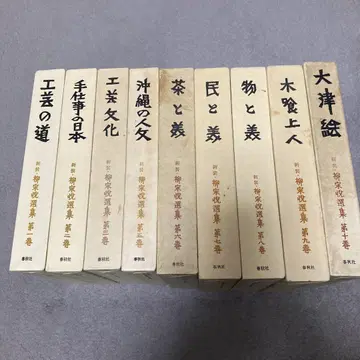 工芸の道
新装 柳宗悦選集 第一巻
春秋社
手仕事の日本
新装 柳宗悦選集 第二巻
春秋社
工芸文化
新装 柳宗悦選集 第三巻
春秋社
沖縄の人文
新装 柳宗悦選集 第五巻
春秋社
茶と美
新装 柳宗悦選集 第六巻
春秋社
民と美
新装 柳宗悦選集 第七巻
春秋社
物と美
新装 柳宗悦選集 第八巻
春秋社
木喰上人
新装 柳宗悦選集 第九巻
春秋社
大津絵
新装 柳宗悦選集 第十巻
春秋社